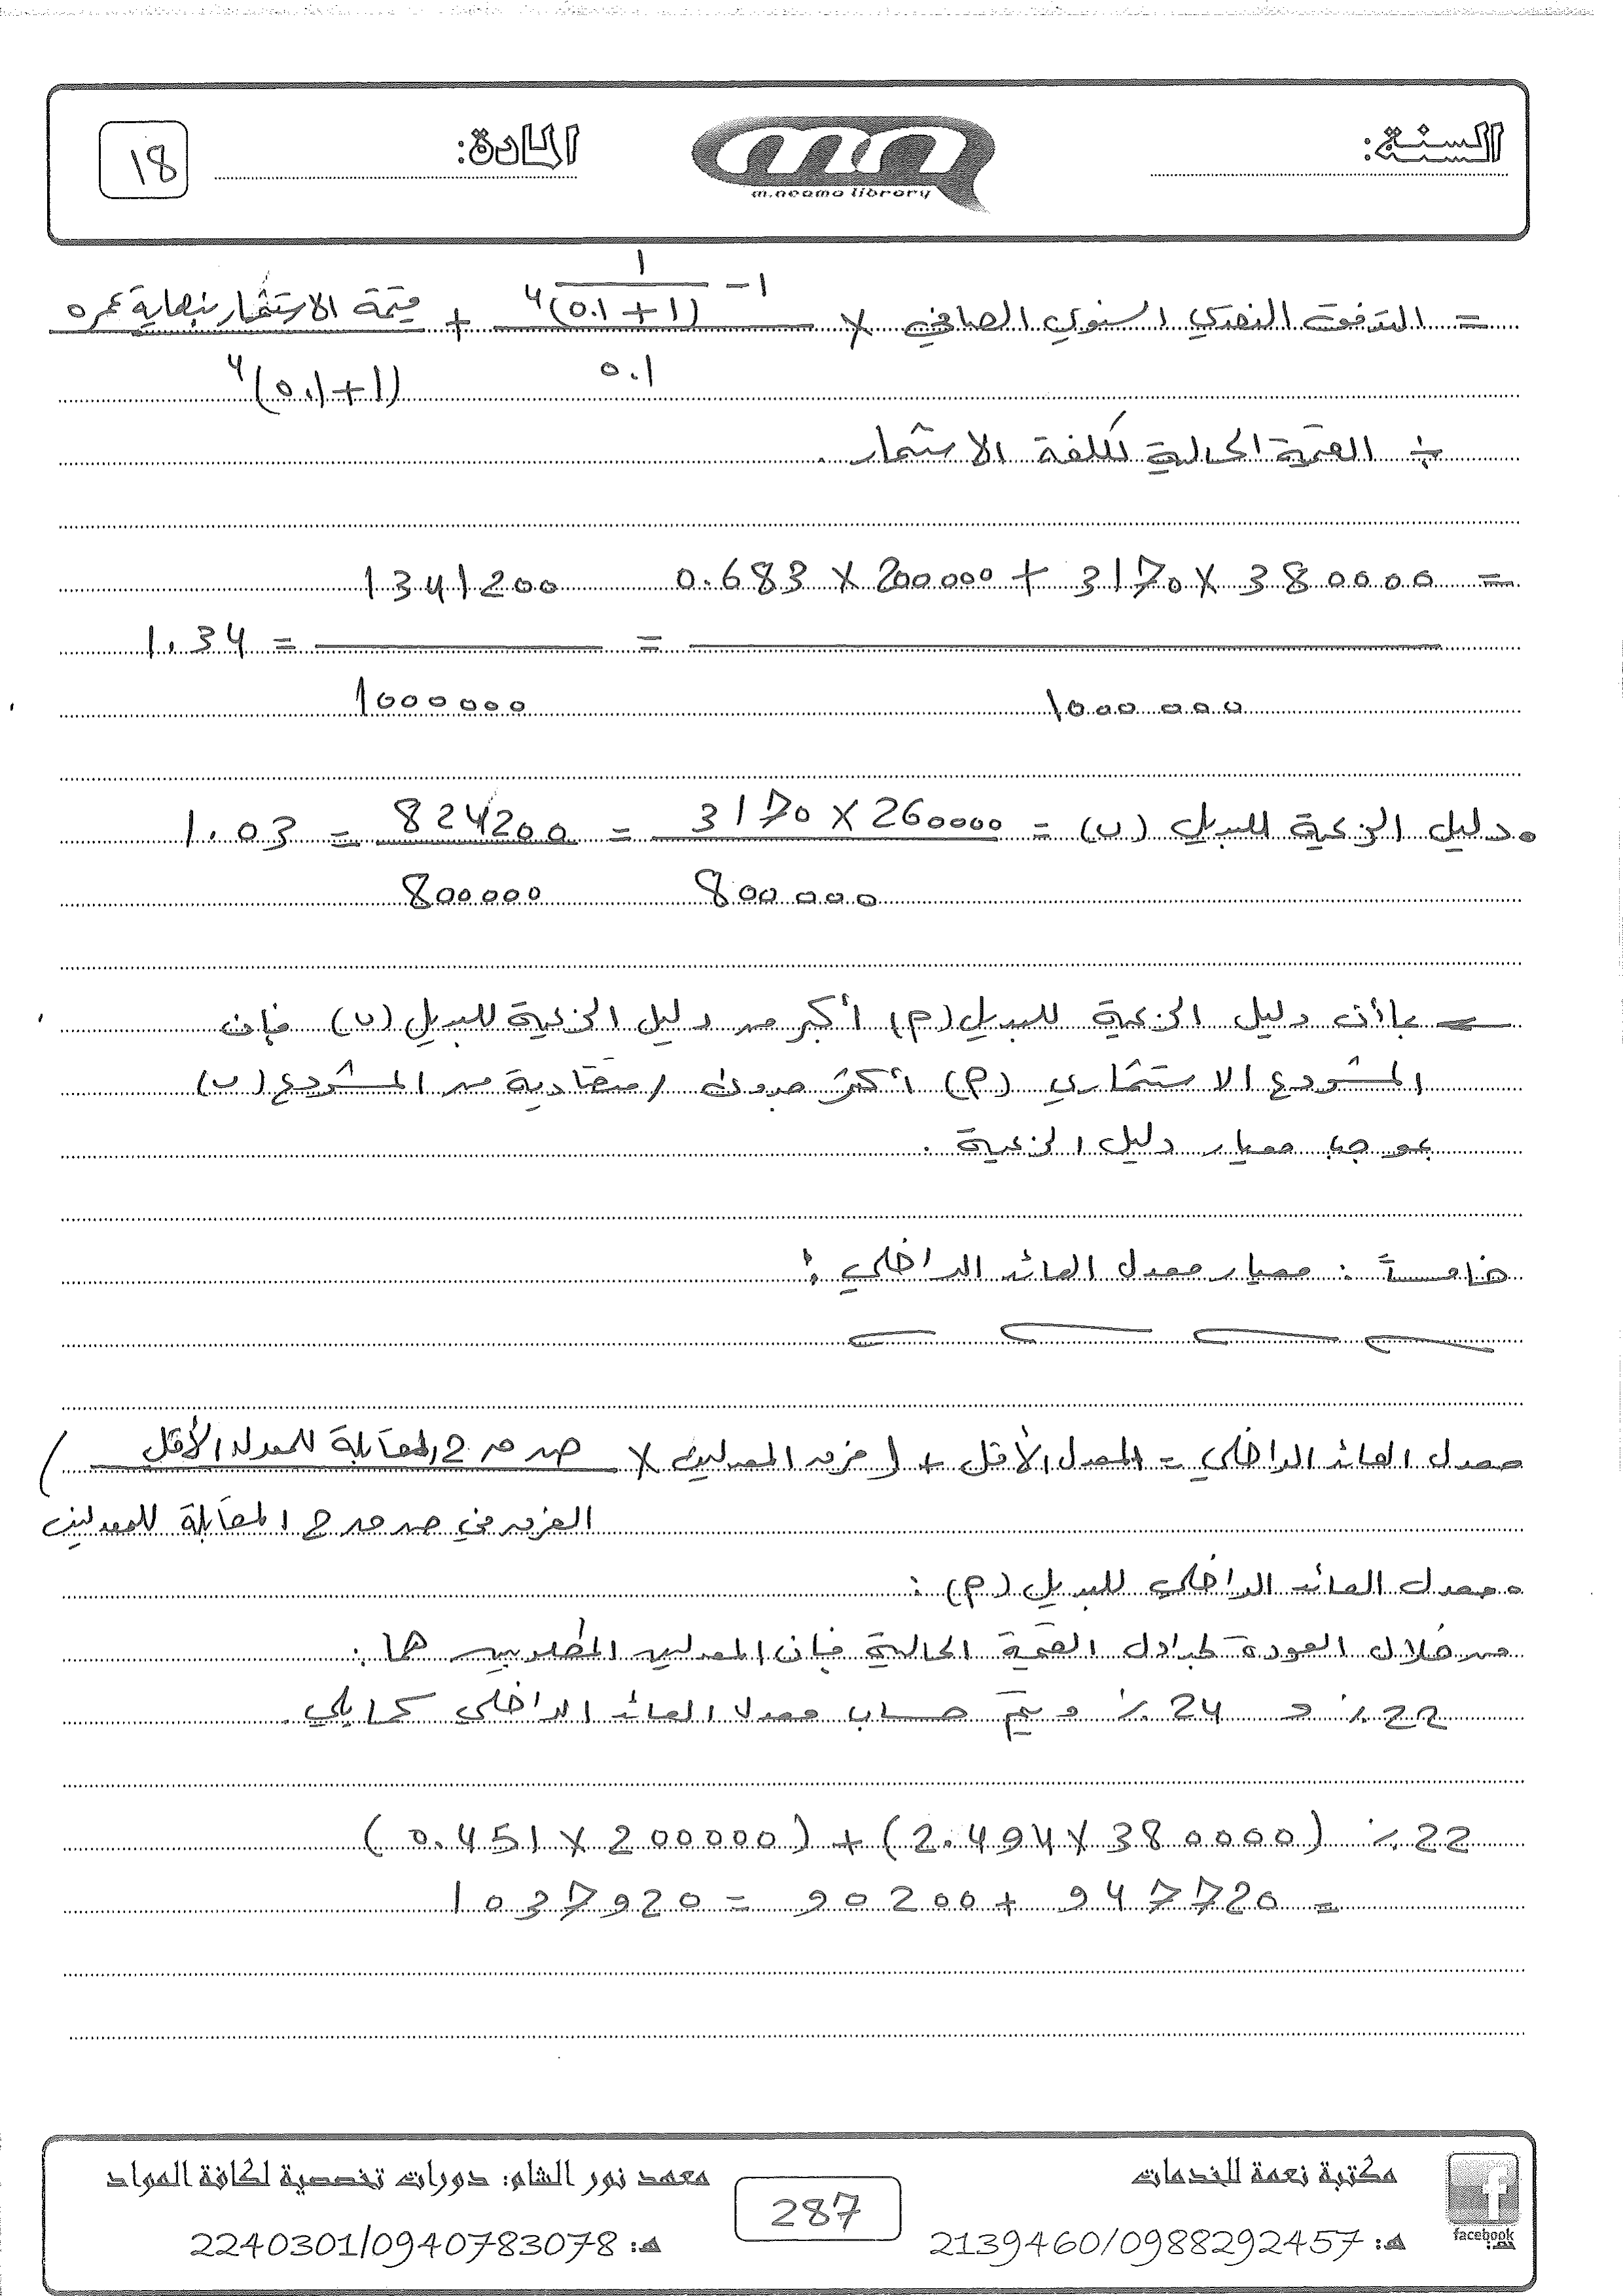 السنة:
m.neama library
المادة:
18
= التدفق النقدي السنوي الصافي × (1 - 1/(1+0.1)^4) / 0.1 + قيمة الاستثمار بنهاية عمره / (1+0.1)^4
÷ القيمة الحالية لكلفة الاستثمار .
= 380000 × 3170 + 200000 × 0.683 / 1000000 = 1341200 / 1000000 = 1.34
• دليل الربحية للبديل (ب) = 260000 × 3170 / 800000 = 824200 / 800000 = 1.03
بما أن دليل الربحية للبديل (م) أكبر من دليل الربحية للبديل (ب) فإن
المشروع الاستثماري (م) أكثر جدوى اقتصادية من المشروع (ب)
بموجب معيار دليل الربحية .
خامساً : معيار معدل العائد الداخلي :
معدل العائد الداخلي = المعدل الأقل + (فرق المعدلين × ص ق ح المقابلة للمعدل الأقل / الفرق في ص ق ح المقابلة للمعدلين)
• معدل العائد الداخلي للبديل (م) :
من خلال العودة لجداول القيمة الحالية فإن المعدلين المطلوبين هما :
22٪ و 24٪ ويتم حساب معدل العائد الداخلي كما يلي .
22٪ (380000 × 2.494) + (200000 × 0.451)
= 947720 + 90200 = 1037920
facebook
مكتبة نعمة للخدمات
هـ: 2139460/0988292457
287
معهد نور الشام: دورات تخصصية لكافة المواد
هـ: 2240301/0940783078